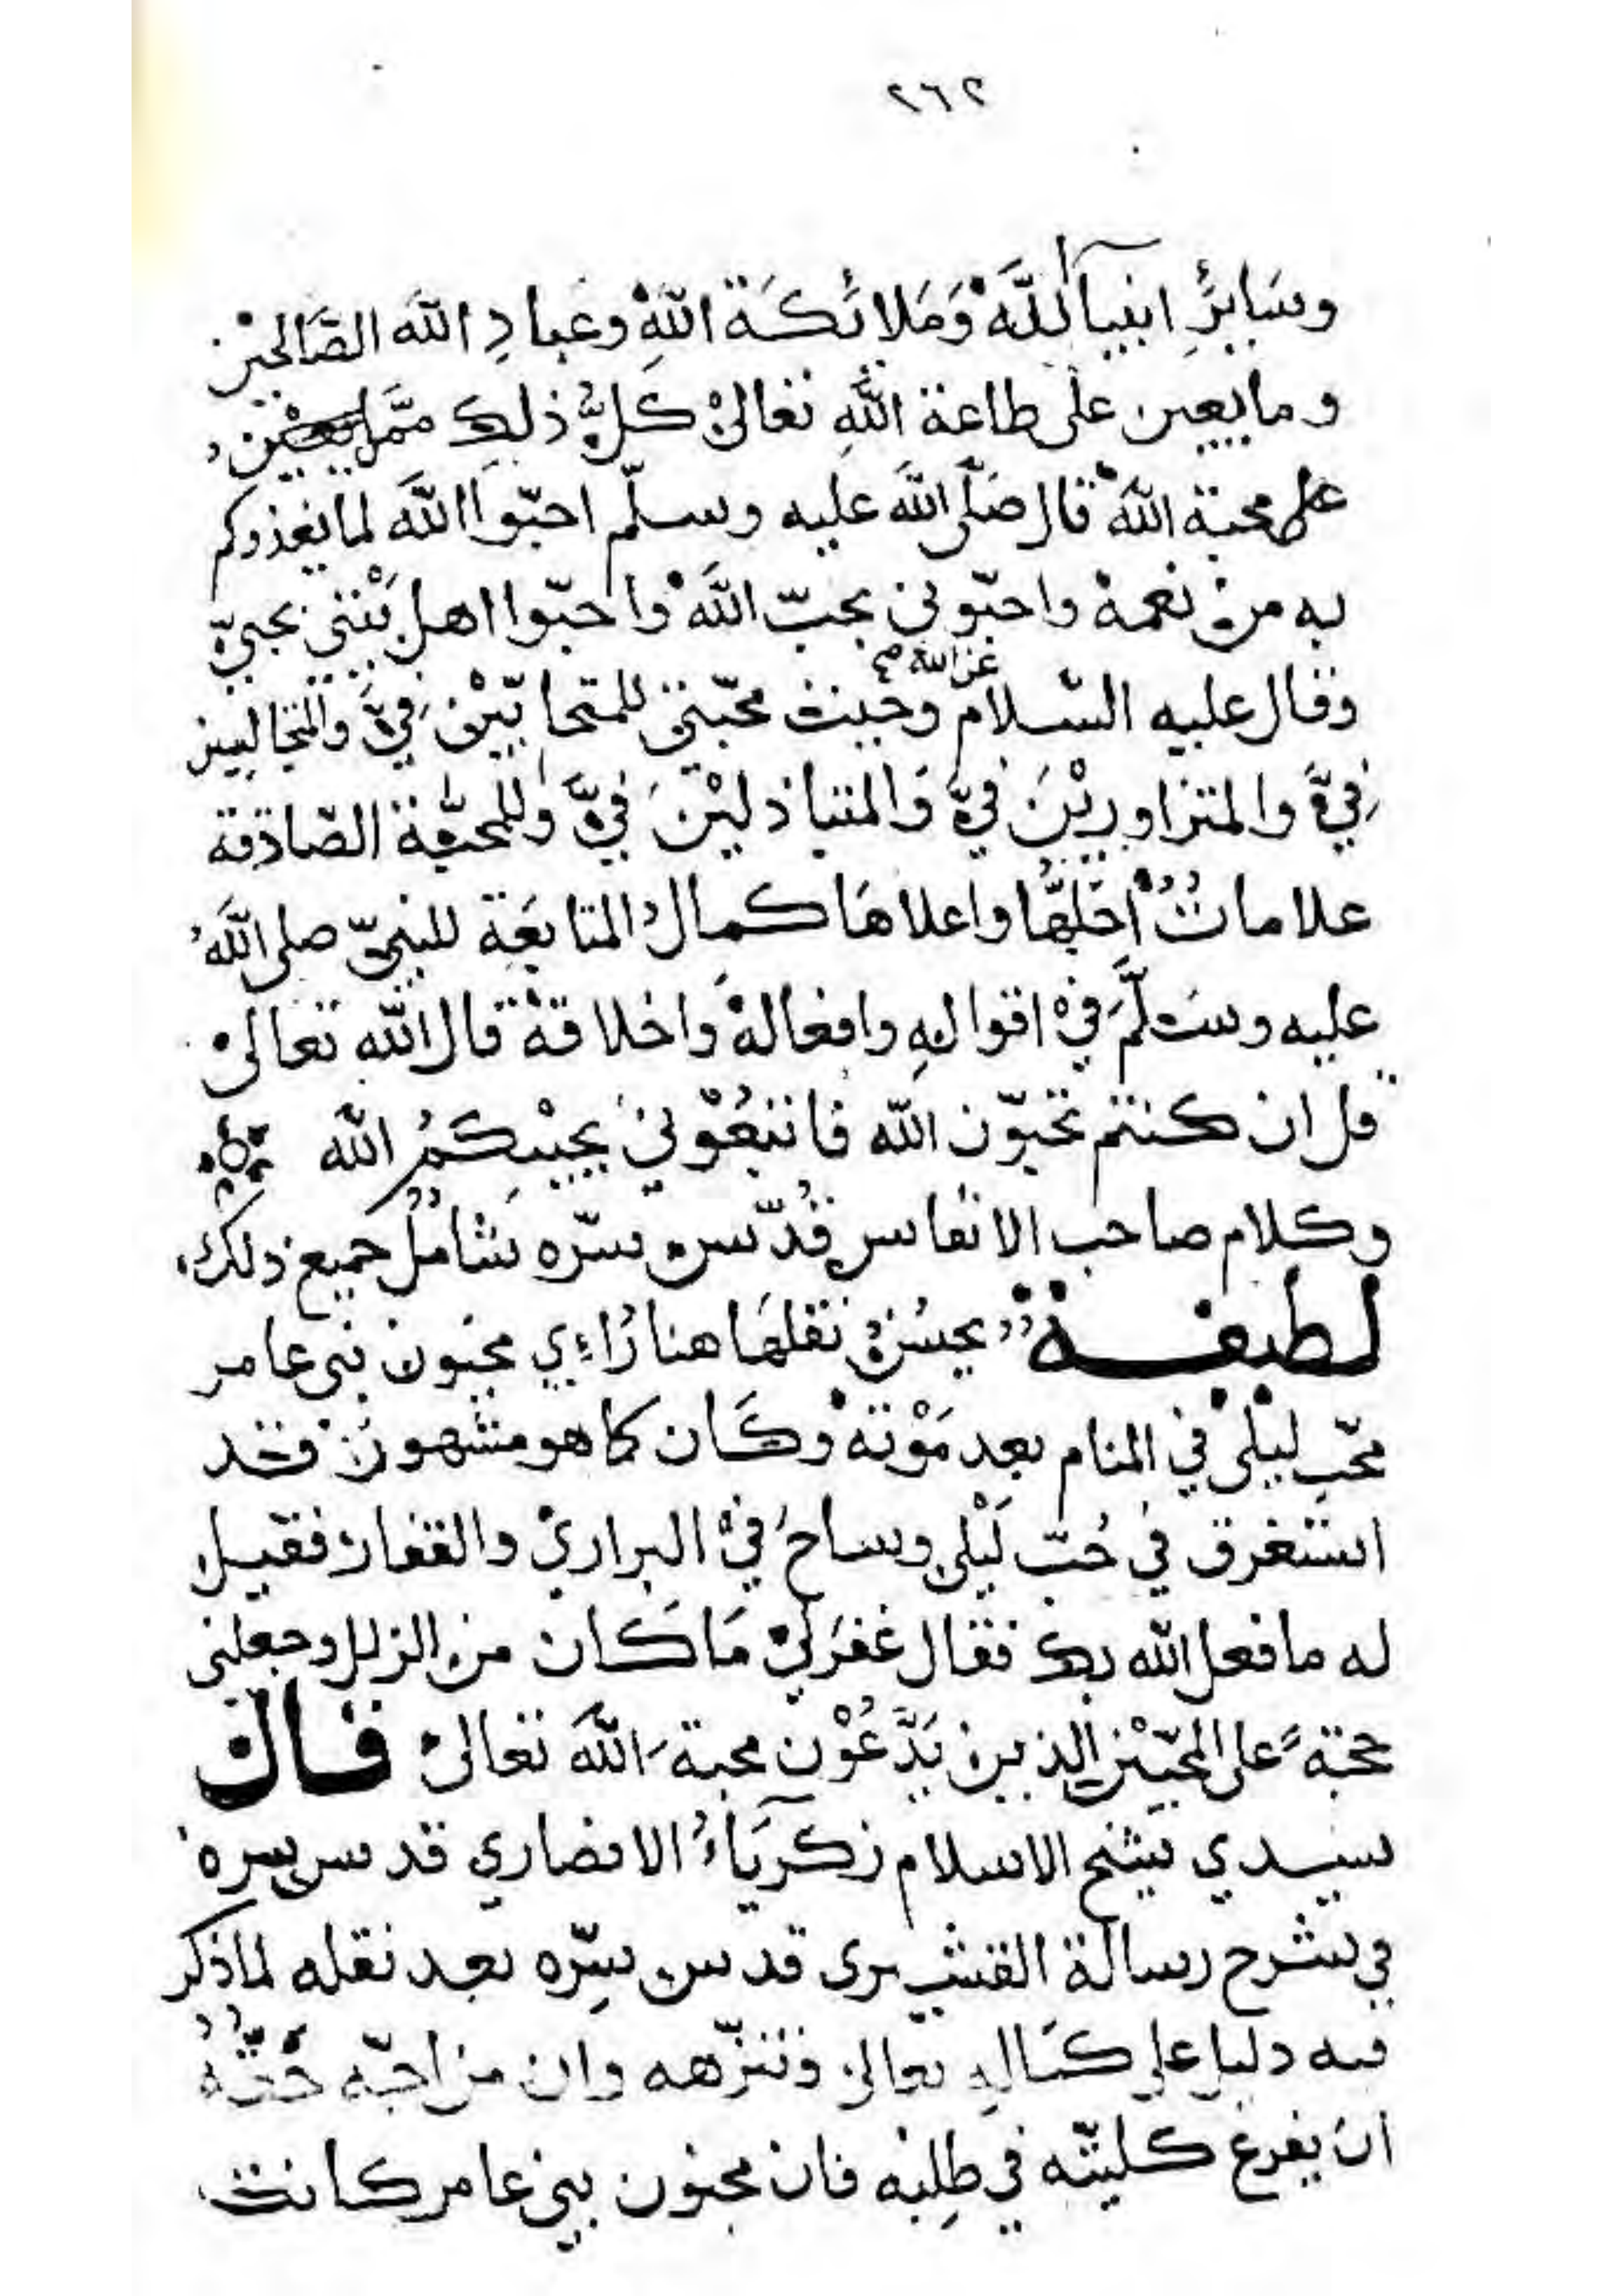 ٢٦٢
وسَايِرِ انبيآا للَّهْ وَمَلائكَة اللهِ وعباد الله الصَّالحيْن
وما يعين على طاعة اللهِ تعالىْ كلُّ ذلك ممَّا يعين
على محبة اللهْ قال صَلّى الله عليه وسلّم احبّوا اللَّه لما يغذوكم
به من نعمهْ واحبّوني بحبّ اللَّهْ واحبّوا اهل بيْتي بحبيّ
عن الله صح
وقال عليه السّلام وجبت محبّتي للمتحابّيْن فيَّ والمتجالسين
فيَّ والمتزاوريْنَ فيَّ وَالمتباذليْنَ فيَّ وللمحبّة الصّادقة
علاماتٌ اجَلّهَا واعلاهَا كمالُ المتابَعَة للنبيّ صلى اللَّهُ
عليه وسَلَّمَ فيْ اقوالهِ وافعالهْ واخلاقهْ قال الله تعالىْ
قل ان كنتم تحبّون الله فاتبعُوْني يحببْكمُ الله
وكلام صاحب الانفاس قُدّس سرّه شاملٌ جميع ذلك
لطيفـــة يحسُنُ نقلهَا هنا رُاءي مجنون بنى عامر
محّب ليْلى في المنام بعد مَوْتهْ وكَان كما هو مشهورْ قد
استغرق في حُبّ لَيْلى وساحَ فيْ البراريْ والقفارْ فقيل
له ما فعل الله بك فقال غفرَليْ مَا كَان من الزلل وجعلنى
حجّةً على المحبّيْن الذين يَدَّعُوْن محبةَ اللَّه تعالىْ قال
سيدي شيخ الاسلام زكريَاءُ الانصاري قدس سره
في شرح رسالة القشيرى قدس سِرّه بعد نقله لما ذكر
فيه دليل على كمَالهِ تعالىْ وتنزّهه وان من احبّه حقُّهُ
ان يفرغ كليتّه في طلِبْه فان مجنون بني عامر كانت